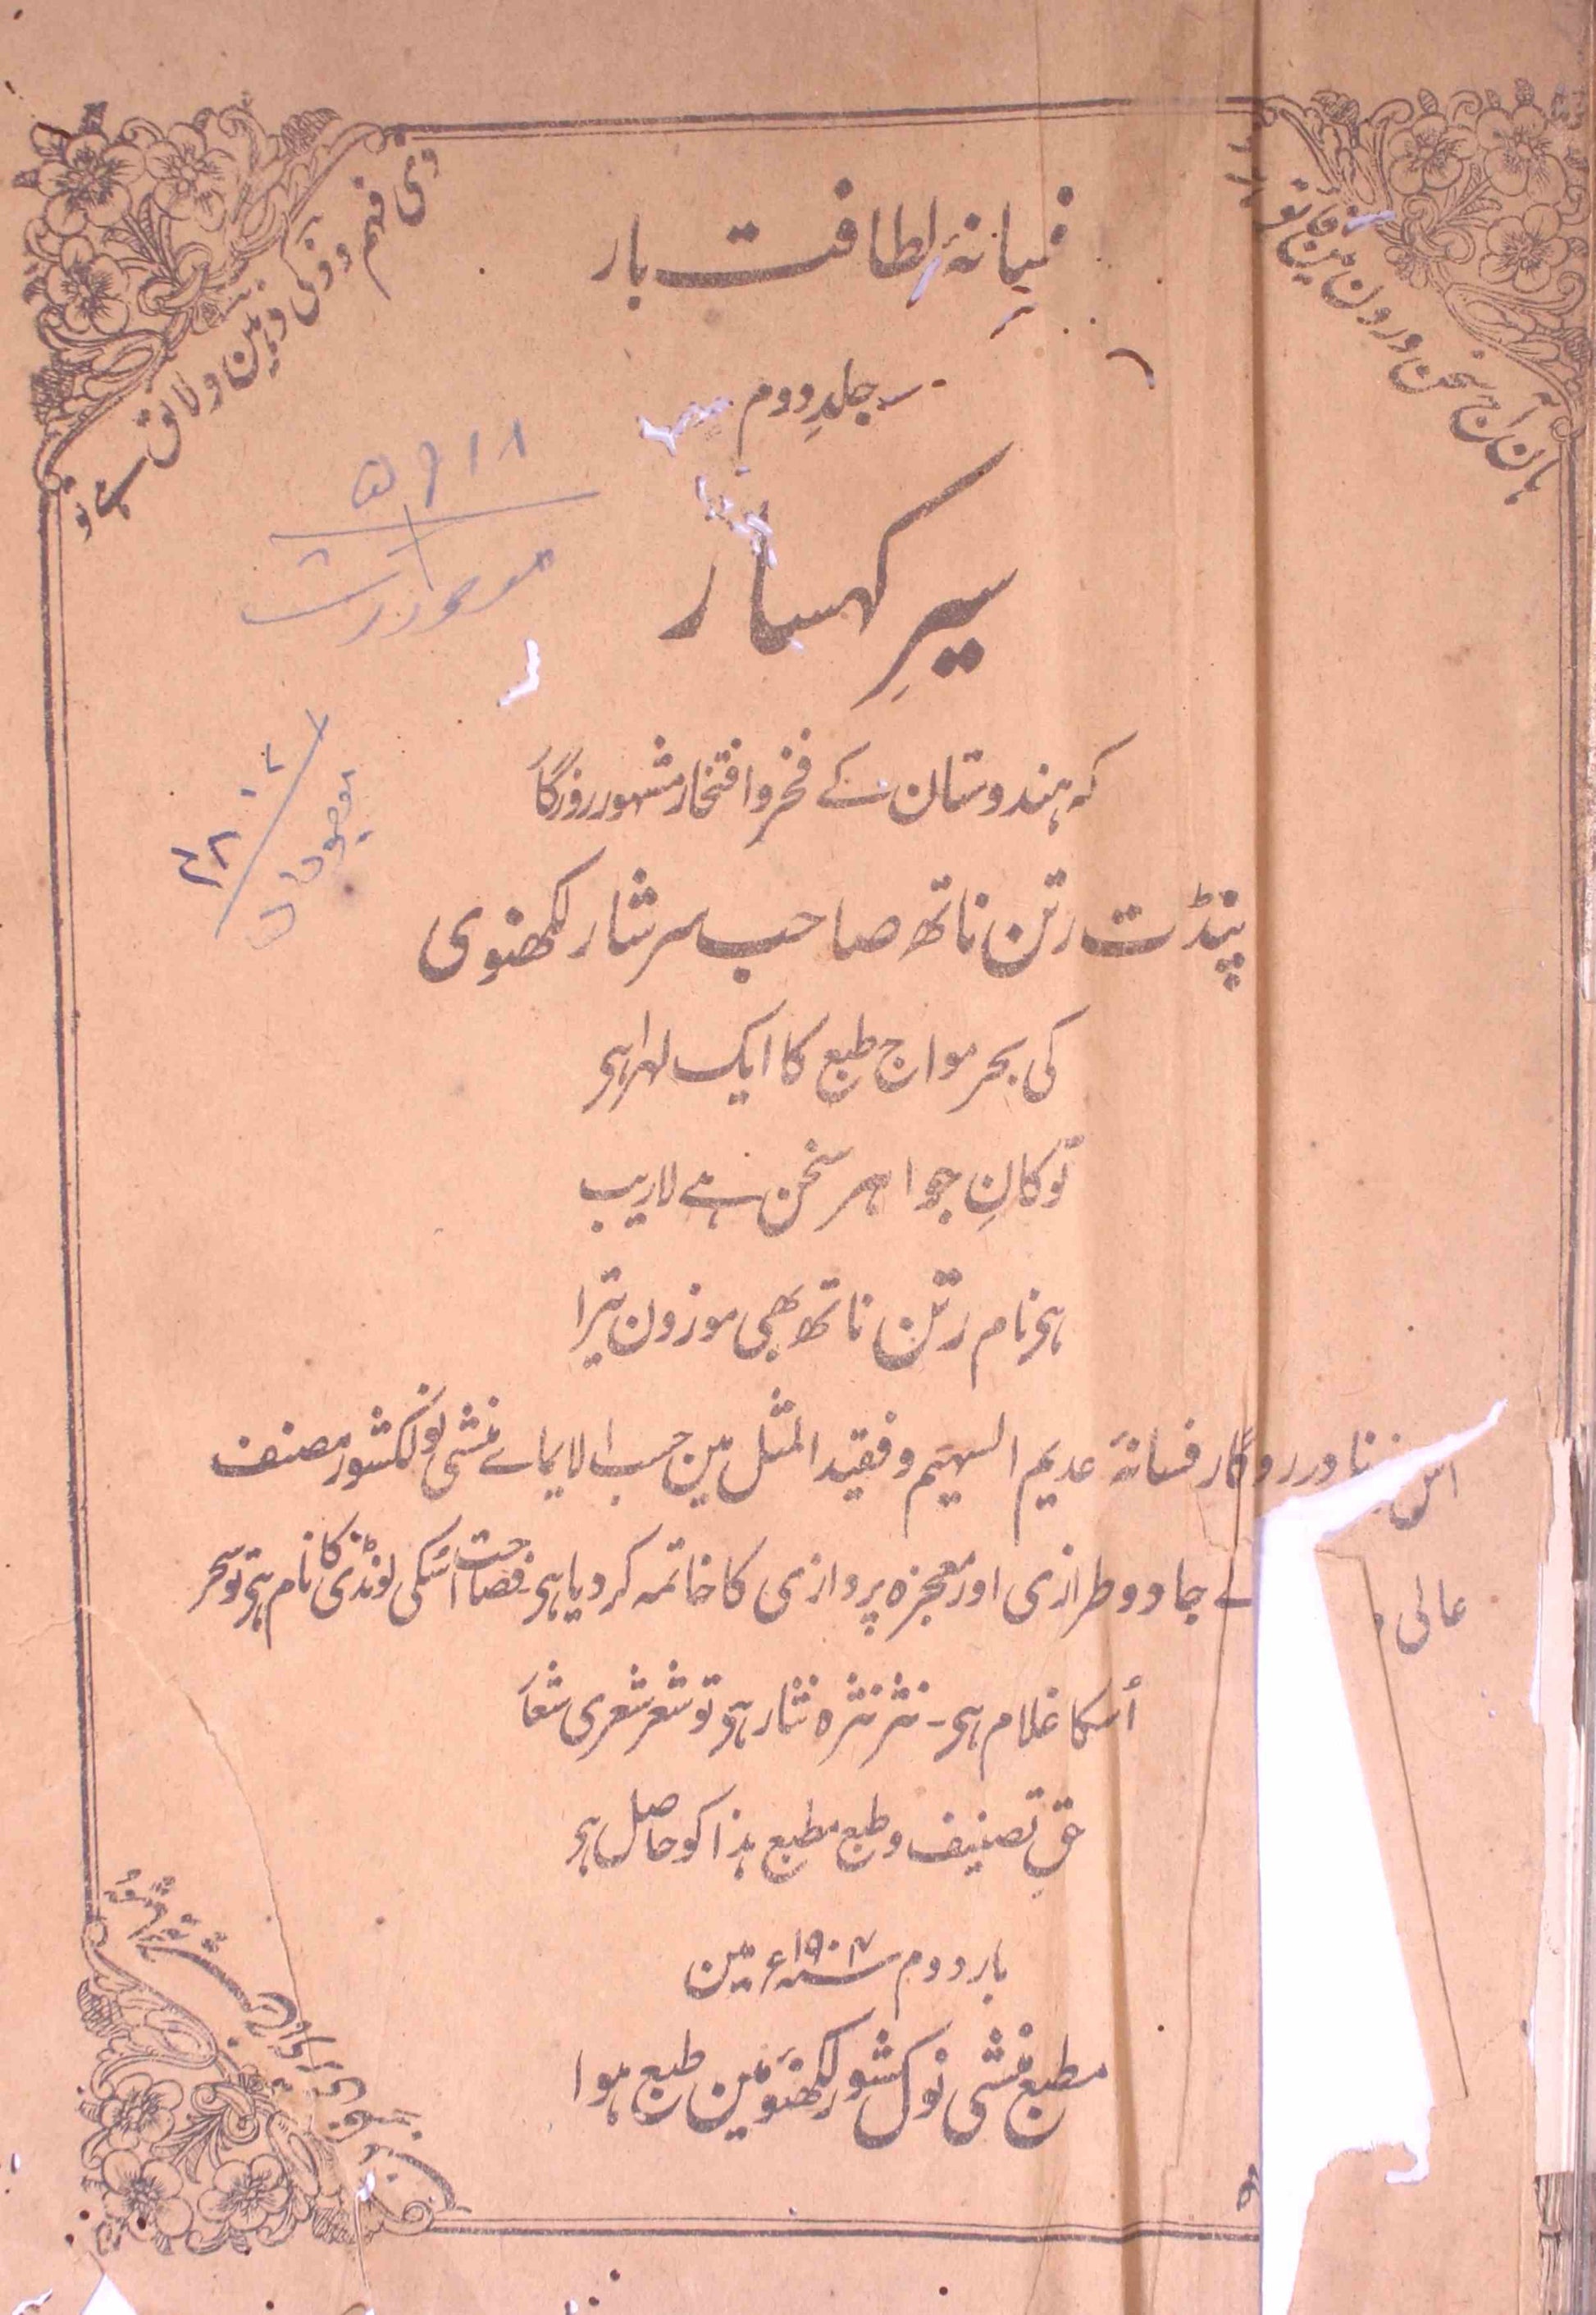 ہان آج سخن ورون مین فائق ہے تو
ذی فہم و ذکی و ذہین و لائق ہے تو
فسانۂ لطافت بار
جلدِ دوم
سیرِ کہسار
کہ ہندوستان کے فخر و افتخار مشہور روزگار
پنڈت رتن ناتھ صاحب سرشار لکھنوی
کی بحر مواج طبع کا ایک لہرا ہی
تو کانِ جواہر سخن ہے لاریب
ہی نام رتن ناتھ بھی موزون تیرا
اس نادر روزگار فسانۂ عدیم السہیم و فقید المثل مین حسب الایماے منشی نولکشور مصنف
عالی نے جادو طرازی اور معجزہ پردازی کا خاتمہ کر دیا ہی۔ فصاحت اسکی لونڈی کا نام ہی تو سحر
اُسکا غلام ہی۔ نثر نثرہ نثار ہی تو شعر شعری شعار
حقِ تصنیف و طبع مطبع ہذا کو حاصل ہی
بار دوم سنہ ء مین
مطبع منشی نول کشور لکھنؤ مین طبع ہوا